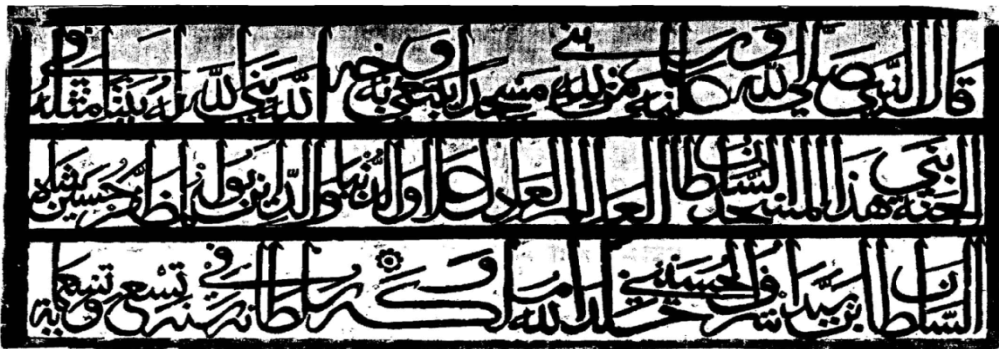 قال النبي صلى الله عليه وسلم من بنى لله مسجدا يبتغي به وجه الله بنى الله له بيتا مثله في
الجنة بنى هذا المسجد السلطان العادل علاء الدنيا والدين ابو المظفر حسين شاه
السلطان بن سيد اشرف الحسيني خلد الله ملكه وسلطانه في سنة تسع وتسعمائة